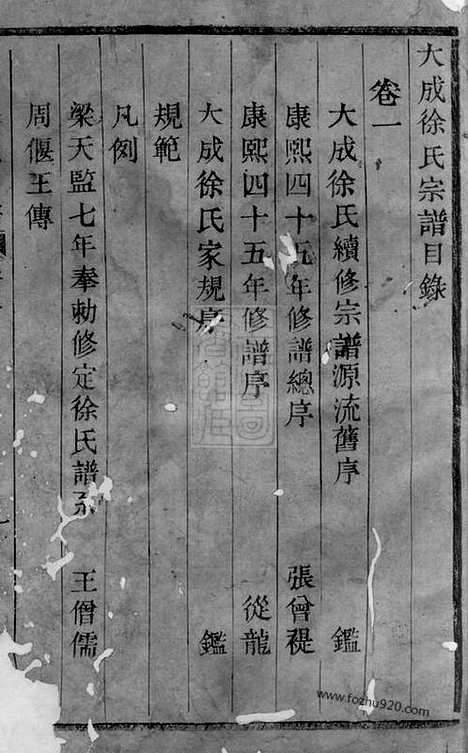 大成徐氏宗譜目錄
卷一
大成徐氏續修宗譜源流舊序 鑑
康熙四十五年修譜總序 張曾禔
康熙四十五年修譜序 從龍
大成徐氏家規序 鑑
規範
凡例
梁天監七年奉勅修定徐氏譜系 王僧儒
周偃王傳
www.fozhu920.com